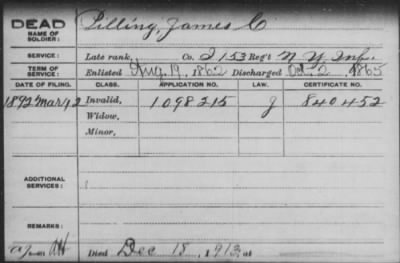 DEAD
NAME OF SOLDIER: Pilling, James C
SERVICE: Late rank, Co. I 153 Reg't N Y Inf.
TERM OF SERVICE: Enlisted Aug. 19, 1862 Discharged Oct. 2, 1865
DATE OF FILING. CLASS. APPLICATION NO. LAW. CERTIFICATE NO.
1892 Mar 12 Invalid, 1098215 J 840452
Widow,
Minor,
ADDITIONAL SERVICES:
REMARKS:
Died Dec 18, 1913, at